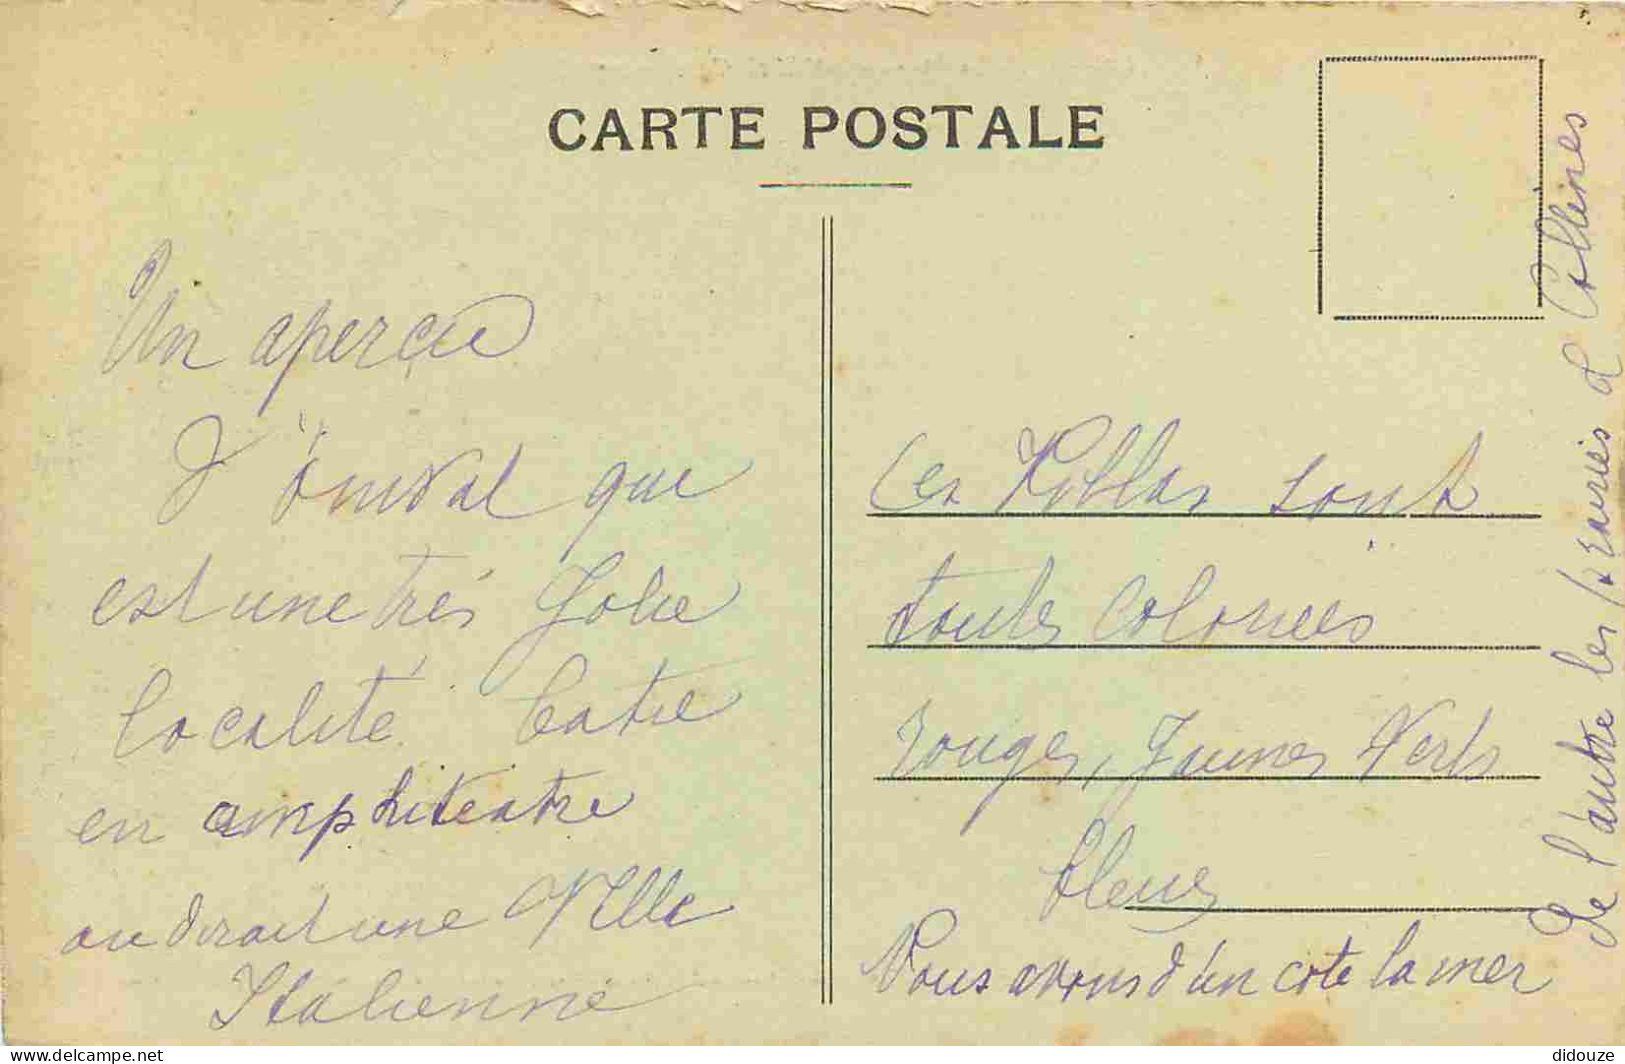 CARTE POSTALE
Un aperçu
d'Onival que
est une très Jolie
localité batie
en amphiteatre
on dirait une Ville
Italienne
Ces Villas sont
toutes colorées
rouges, Jaunes Verts
bleus
Nous avons d'un coté la mer
De l'autre les prairies & Collines
delcampe.net
didouze